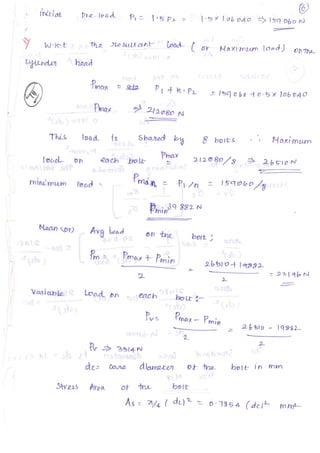 6
initial pre load P1 = 1.5 P2 = 1.5 x 106040 => 159060 N
W.K.t The resultant load ( or Maximum load) on the
cylinder head
Pmax = P1 + K.P2 = 159060 + 0.5 x 106040
Pmax => 212080 N
This load is shared by 8 bolts ∴ Maximum
load on each bolt Pmax 212080/8 => 26510N
minimum load Pmin = P1/n = 159060/8
Pmin 19882 N
Mean (or) Avg load on the bolt ;
Pm = Pmax + Pmin / 2 = 26510 + 19882 / 2 = 23196 N
Variable Load on each bolt :-
Pv = Pmax - Pmin / 2 = 26510 - 19882 / 2
Pv => 3314 N
dc = core diameter of the bolt in mm
Stress Area of the bolt
As = π/4 (dc)² = 0.7854 (dc)² mm²